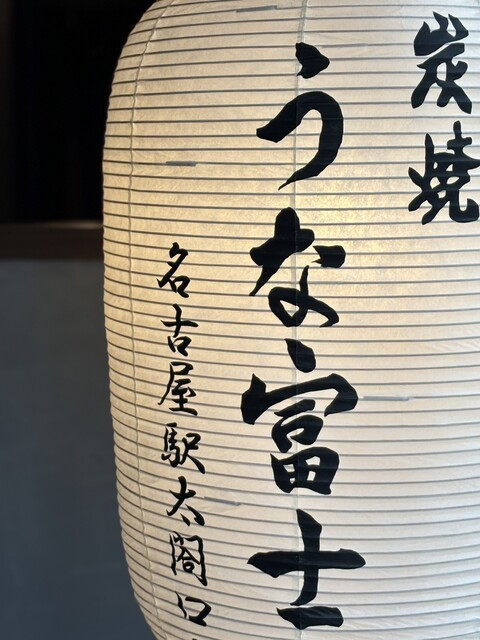 炭焼
うな富士
名古屋駅太閤口